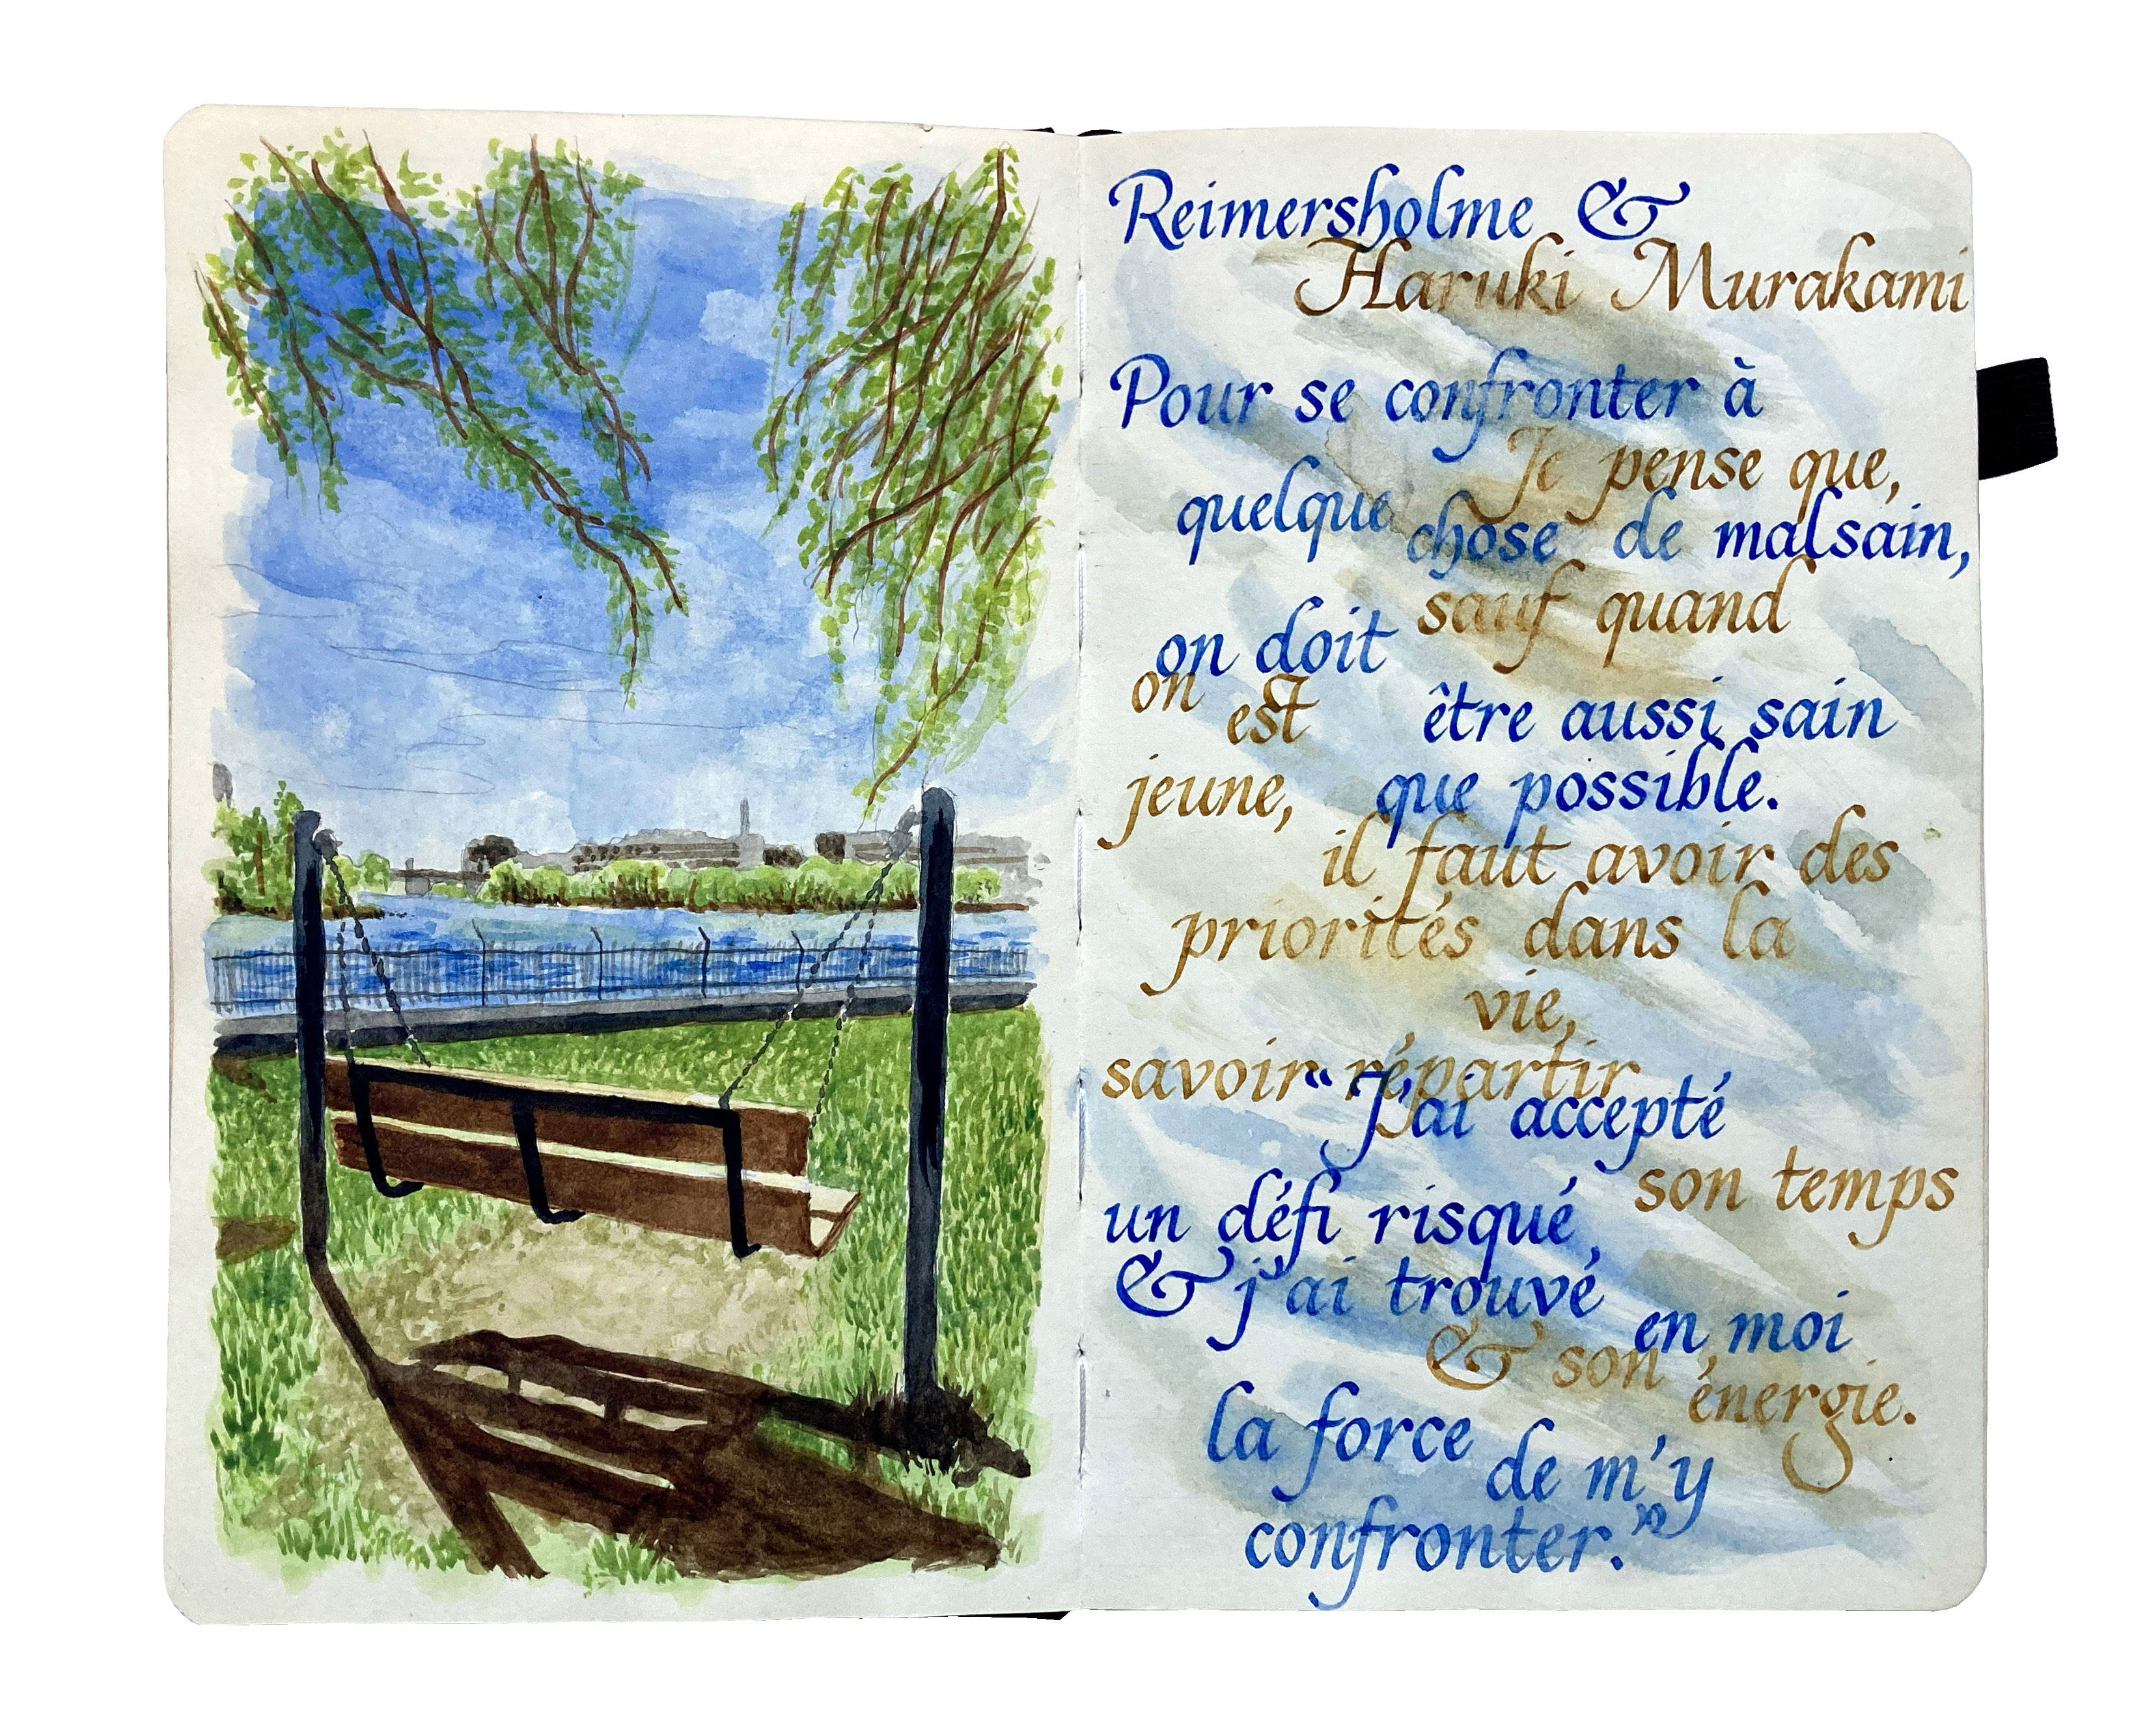 Reimersholme &
Haruki Murakami
Pour se confronter à
Je pense que,
quelque chose de malsain,
sauf quand
on doit
on est
être aussi sain
jeune,
que possible.
il faut avoir des
priorités dans la
vie,
savoir répartir
“J'ai accepté
son temps
un défi risqué,
& j'ai trouvé
en moi
& son énergie.
la force
de m'y
confronter.”